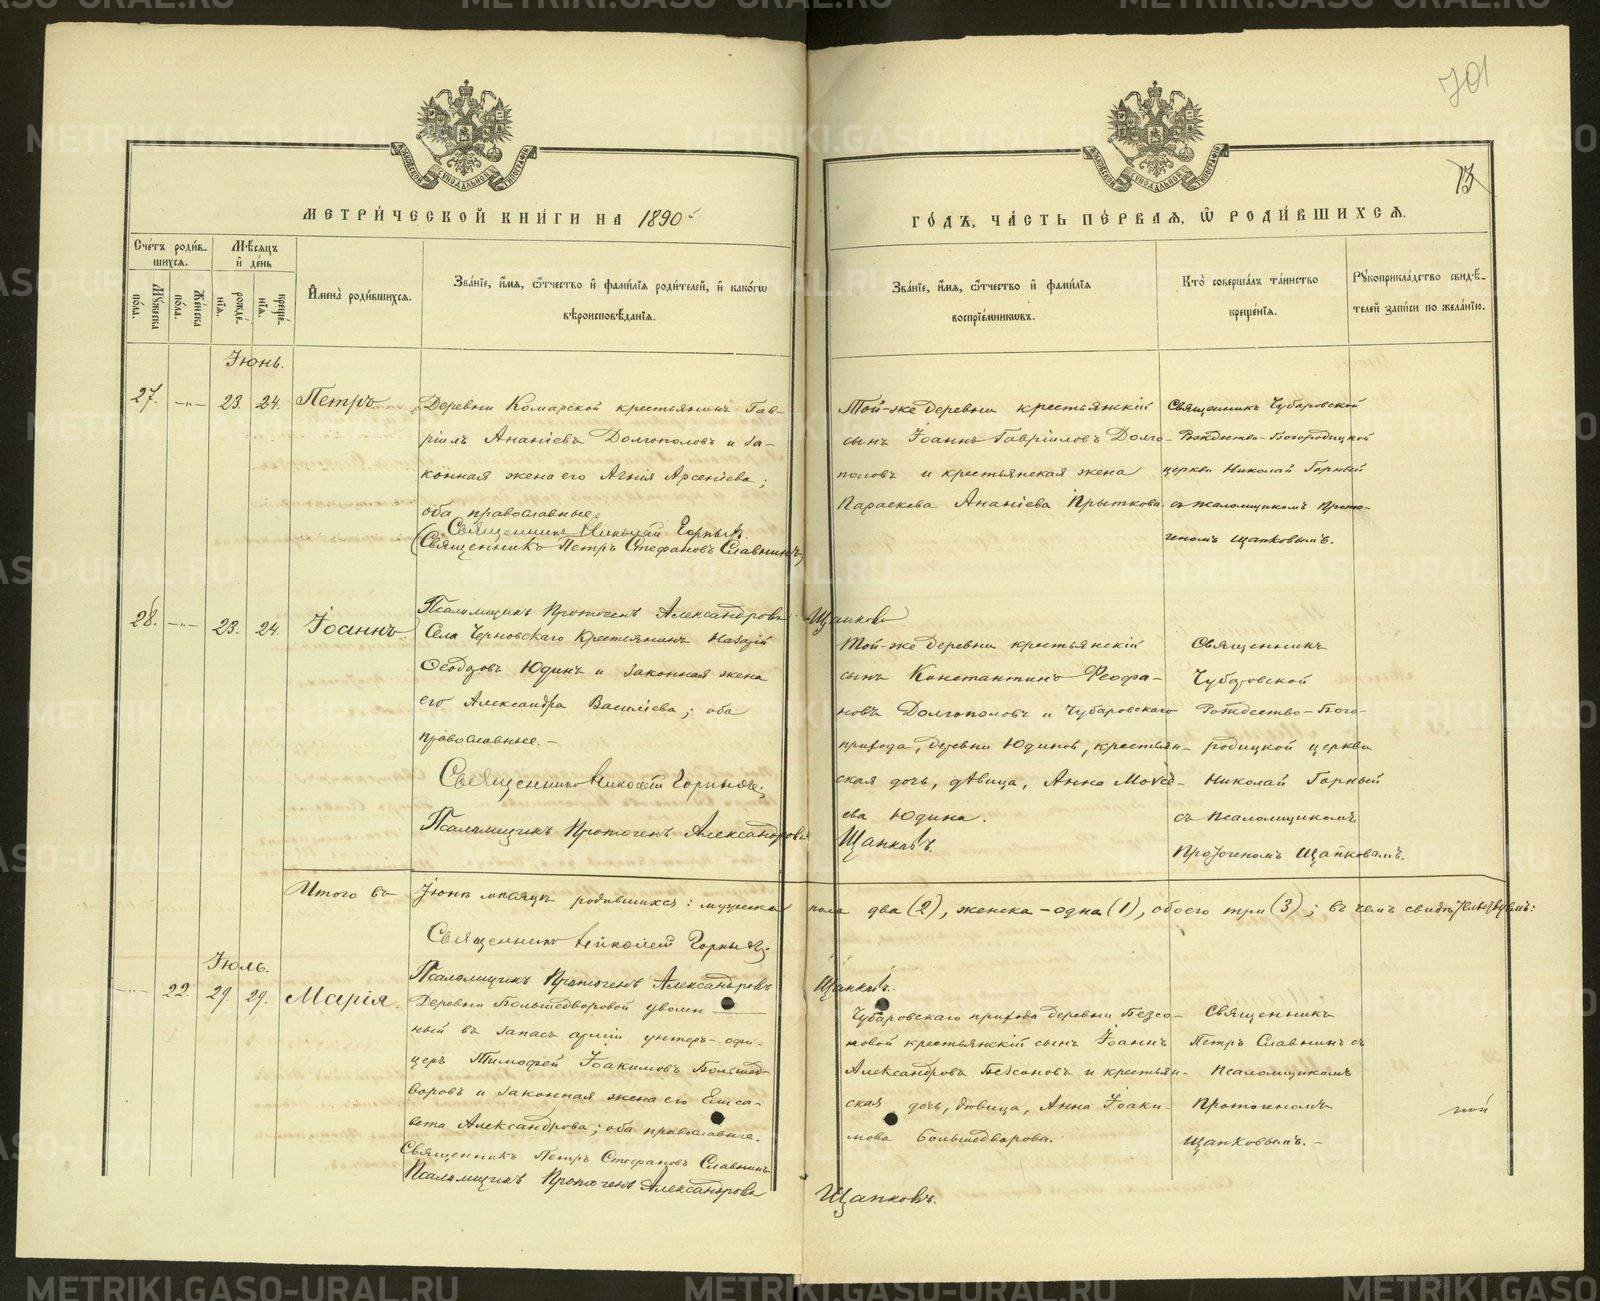 701
13
МОСКОВСКОЙ СУНОДАЛЬНОЙ ТИПОГРАФІИ
МОСКОВСКОЙ СУНОДАЛЬНОЙ ТИПОГРАФІИ
МЕТРИЧЕСКОЙ КНИГИ НА 1890
ГОДЪ, ЧАСТЬ ПЕРВАЯ, Ѡ РОДИВШИХСЯ.
Счетъ родившихся.
Мужеска пола.
Женска пола.
Мѣсяцъ и день
рожденія.
крещенія.
Имена родившихся.
Званіе, имя, отчество и фамилія родителей, и какого
вѣроисповѣданія.
Званіе, имя, отчество и фамилія
воспріемниковъ.
Кто совершалъ таинство
крещенія.
Рукоприкладство свидѣ-
телей записи по желанію.
Іюнь.
27. -„- 23. 24. Петръ
Деревни Комарской крестьянинъ Гав-
ріилъ Ананіевъ Долгополовъ и за-
конная жена его Агнія Арсеніева;
оба православные.
Священникъ Николай Горныхъ.
(Священникъ Петръ Стефановъ Славнинъ)
Псаломщикъ Протогенъ Александровъ Щапковъ
Той-же деревни крестьянскій
сынъ Іоаннъ Гавріиловъ Долго-
половъ и крестьянская жена
Параскева Ананіева Прыткова.
Священникъ Чубаровской
Рождество-Богородицкой
церкви Николай Горный
съ псаломщикомъ Прото-
геномъ Щапковымъ.
28. -„- 23. 24. Іоаннъ.
Села Черновскаго Крестьянинъ Назарій
Юдинъ и законная жена
его Александра Василіева; оба
православные.-
Священникъ Николай Горныхъ;
Псаломщикъ Протогенъ Александровъ
Щапковъ.
Той-же деревни крестьянскій
сынъ Константинъ Феофа-
новъ Долгополовъ и Чубаровскаго
прихода, деревни Юдиной, крестьян-
ская дочь, дѣвица, Анна Моисе-
ева Юдина.
Священникъ
Чубаровской
Рождество-Бого-
родицкой церкви
Николай Горный
съ Псаломщикомъ
Протогеномъ Щапковымъ.
Итого въ Іюнѣ мѣсяцѣ родившихся: мужеска пола два (2), женска - одна (1), обоего три (3); въ чемъ свидѣтельствуемъ:
Священникъ Николай Горныхъ;
Псаломщикъ Протогенъ Александровъ Щапковъ.
Іюль.
-„- 22. 29. 29. Марія.
Деревни Большедворовой уволен-
ный въ запасъ арміи унтеръ-офи-
церъ Тимофей Іоакимовъ Большед-
воровъ и законная жена его Елиса-
вета Александрова; оба православные.
Священникъ Петръ Стефановъ Славнинъ
Псаломщикъ Протогенъ Александровъ
Щапковъ.
Чубаровскаго прихода деревни Безсо-
новой крестьянскій сынъ Іоаннъ
Александровъ Безсоновъ и крестьян-
ская дочь, дѣвица, Анна Іоаки-
мова Большедворова.
Священникъ
Петръ Славнинъ съ
Псаломщикомъ
Протогеномъ
Щапковымъ.-
METRIKI.GASO-URAL.RU